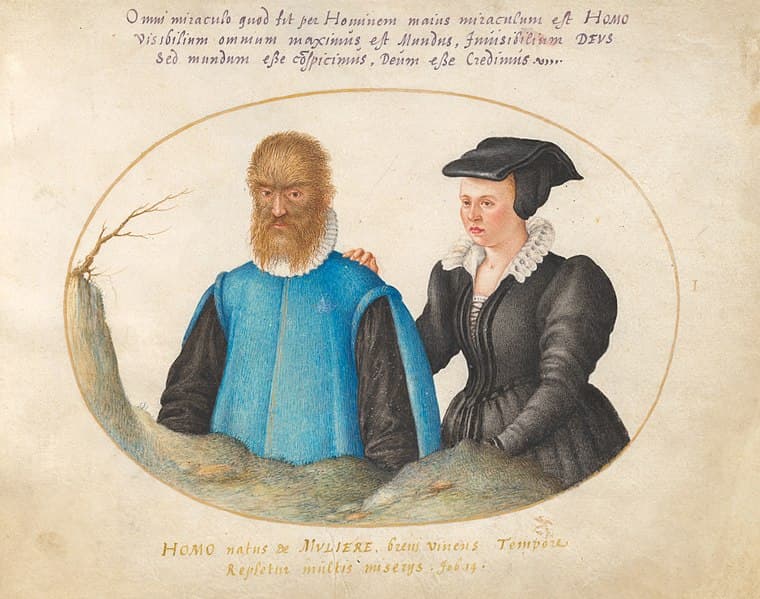 Omni miraculo quod fit per Hominem maius miraculum est HOMO
Visibilium omnium maximus est Mundus, Inuisibilium DEVS
Sed mundum eße cōspicimus, Deum eße Credimus
I
HOMO natus de MVLIERE, breui viuens Tempore
Repletur multis miserys. Job 14.